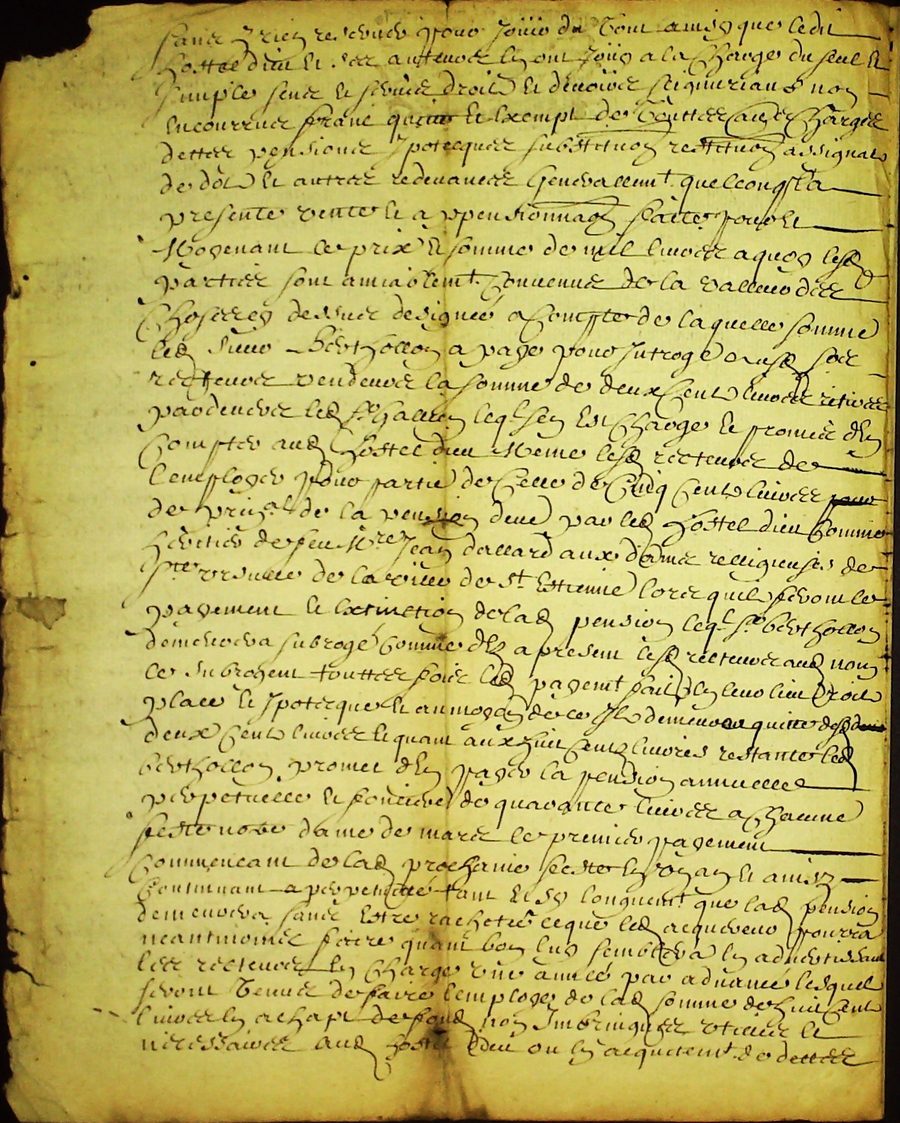 sans rien reserver pour jouir du tout ainsy que ledit
hostel dieu et ses autheurs en ont jouy a la charge du seul et
simple sens et servis droits et devoirs seigneuriaux non
encourrues franc quitte et exempt de touttes autres charges
debtes pensions ypotecques substituon restituon assignats
de dot et autres redevances generallemt quelconqs la
presente vente et appensionnaon faitte pour et
Moyenant le prix et somme de mil livres a quoy lesd
parties sont amiablemt convenues de la valleur des
choses cy dessus designée a compte de laquelle somme
led sieur Berthollon a payé pour jntroge ausd srs
recteurs vendeurs la somme de deux cents livres retirée
par devers led sr leql sen est chargé et promis den
compter aud hostel dieu Meme lesd recteurs de
lemployer pour partie de celle de cinq cents livres
de prinal de la pension deue par led hostel dieu comme
heritier de feu Mre Jean dallard aux dames religieuses de
Ste ursulle de la ville de st Estienne lors quils feront le
payement et extinction de lad pension leql sr berthollon
demeurera subrogé comme des a present lesd recteurs aud nom
le subrogent touttes fois led payemt fait en leur lieu droit
place et ypotecque et au moyen de ce jl demeure quitte desd
deux cents livres et quant aux huit cents livres restantes led
berthollon promet den payer la pension annuelle
perpetuelle et fonciere de quarante livres a chacune
feste notre dame de mars le premier payement
commencant de lad prochaine feste en un an et ainsy
continuant a perpetuité tant et sy longuemt que lad pension
demeurera sans estre rachetée ce que led acquereur pourra
neantmoins faire quant bon luy semblera en advertissant
les recteurs en charge une année par advance lesquels
seront tenus de faire lemploye de lad somme de huit cents
livres en achapt de fonds non jmbringués utilles et
necessaires aud hostel dieu ou en acquitemt de debtes